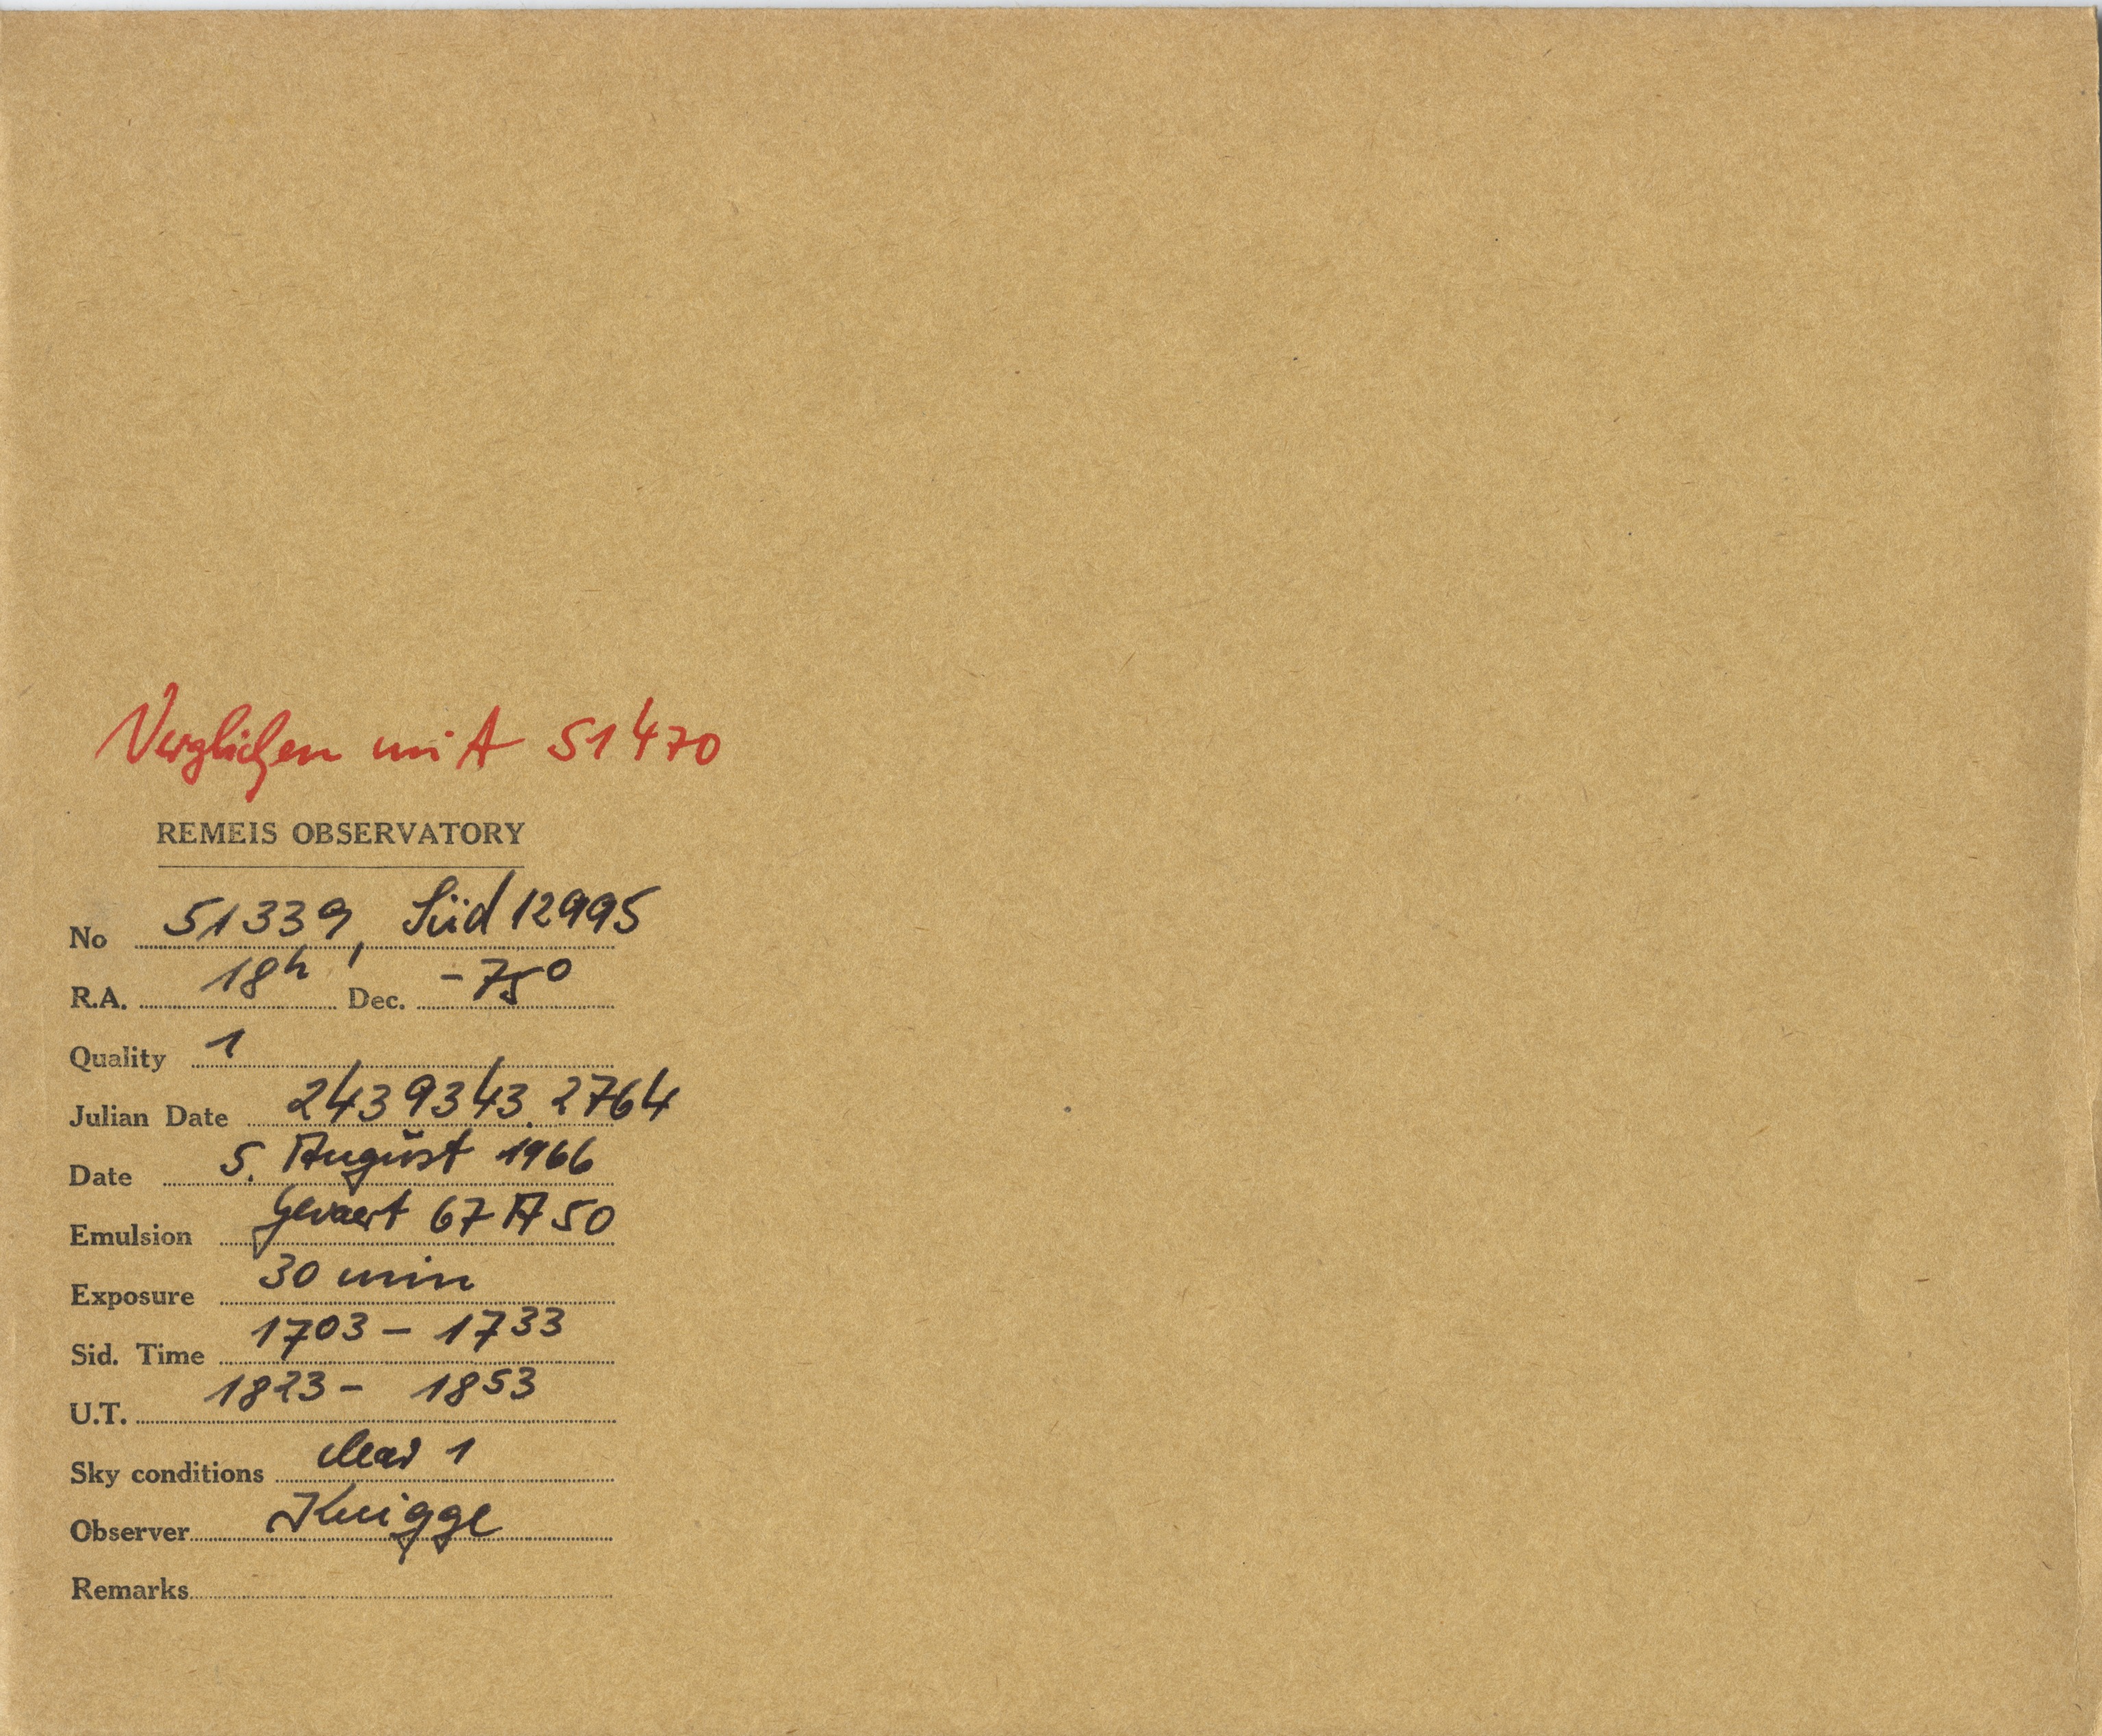 Verglichen mit 51470
REMEIS OBSERVATORY
No 51339, Süd 12995
R.A. 18h Dec. -75°
Quality 1
Julian Date 2439343.2764
Date 5. August 1966
Emulsion Gevaert 67 A 50
Exposure 30 min
Sid. Time 1703 - 1733
U.T. 1823 - 1853
Sky conditions clear 1
Observer Knigge
Remarks